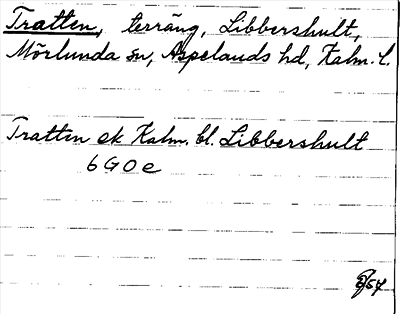 Tratten, terräng, Libbershult,
Mörlunda sn, Aspelands hd, Kalm. l.
Tratten ek Kalm. bl. Libbershult
6G0e